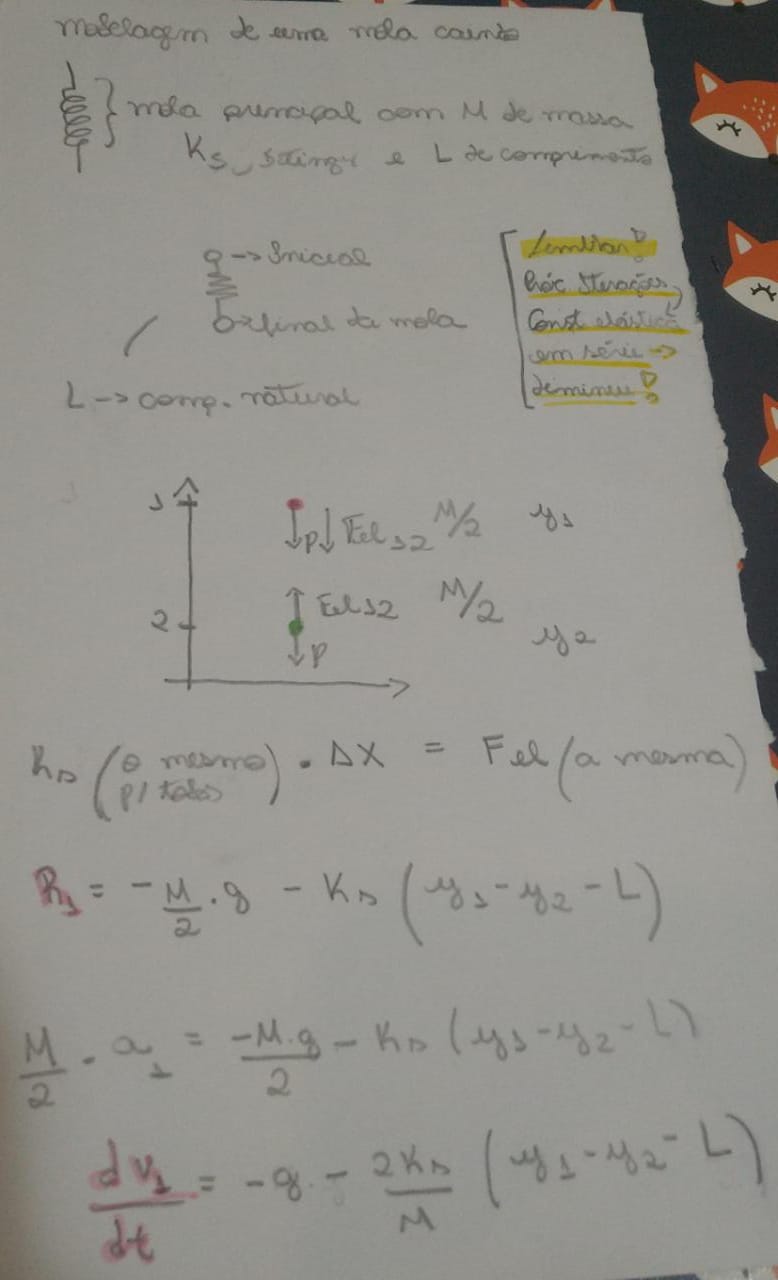 modelagem de uma mola caindo
} mola principal com M de massa
Ks, e L de comprimento
→ Inicial
→ final da mola
L → comp. natural
Lembrar!
Const elástica
em série →
diminui!
1 P Fel12 M/2 y1
2 Fel12 M/2 y2
P
Ks (o mesmo p/ todos) . ΔX = Fel (a mesma)
R1 = -M/2 . g - Ks (y1 - y2 - L)
M/2 . a1 = -M.g/2 - Ks (y1 - y2 - L)
dv1/dt = -g - 2Ks/M (y1 - y2 - L)